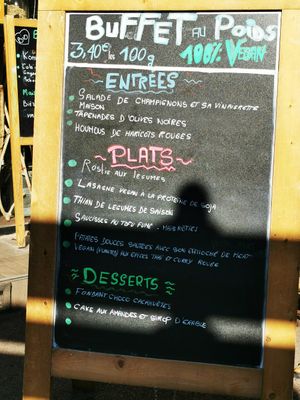 BUFFET AU POIDS
3,40€ les 100g 100% VEGAN
ENTRÉES
SALADE DE CHAMPIGNONS ET SA VINAIGRETTE
MAISON
TAPENADES D'OLIVES NOIRES
HOUMOUS DE HARICOTS ROUGES
PLATS
RÖSTIS AUX LÉGUMES
LASAGNE VEGAN À LA PROTÉINE DE SOJA
THIAN DE LÉGUMES DE SAISON
SAUCISSES AU TOFU FUMÉ
PATATES DOUCES SAUTÉES AVEC SON DE MEAT
VEGAN AUX ÉPICES THAÏ ET CURRY ROUGE
DESSERTS
FONDANT CHOCO CACAHUÈTES
CAKE AUX AMANDES ET SIROP D'ÉRABLE